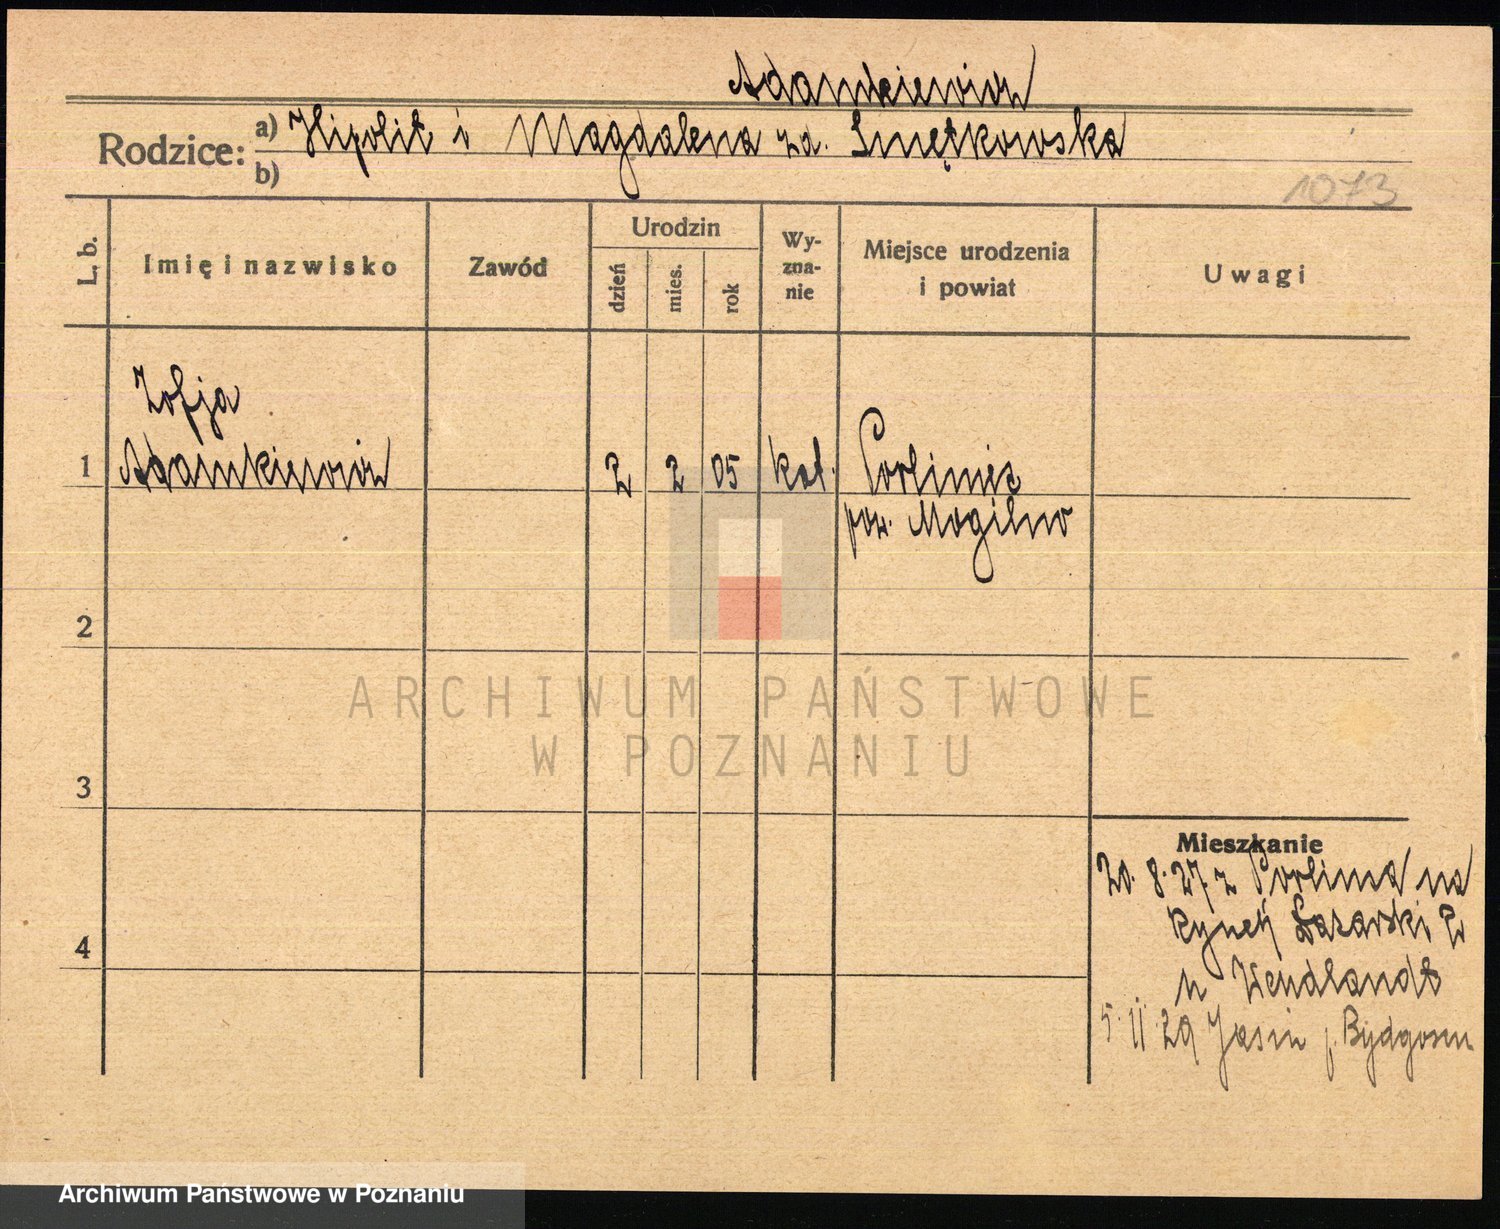 Adamkiewicz
Rodzice: a) Hipolit i Magdalena za. Smętkowska
b)
1073
L. b.
Imię i nazwisko
Zawód
Urodzin
dzień
mies.
rok
Wy-
zna-
nie
Miejsce urodzenia
i powiat
Uwagi
Zofja
1 Adamkiewicz 2 2 05 kat.
pow. Mogilno
2
3
4
Mieszkanie
20. 8. 27 z na
Rynek Łazarski
u Wendlandt
5. 11. 29 Jasin p. Bydgoszcz
ARCHIWUM PAŃSTWOWE
W POZNANIU
Archiwum Państwowe w Poznaniu